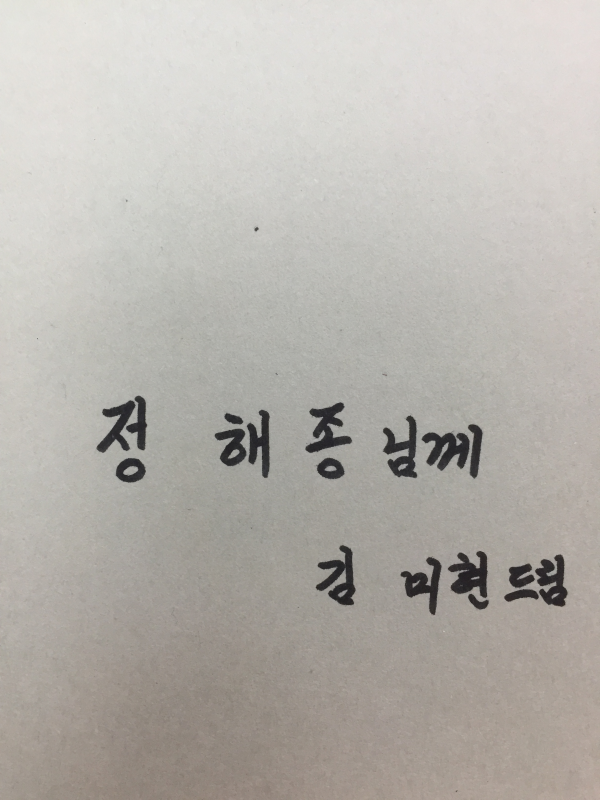 정 해종 님께
김 미현 드림